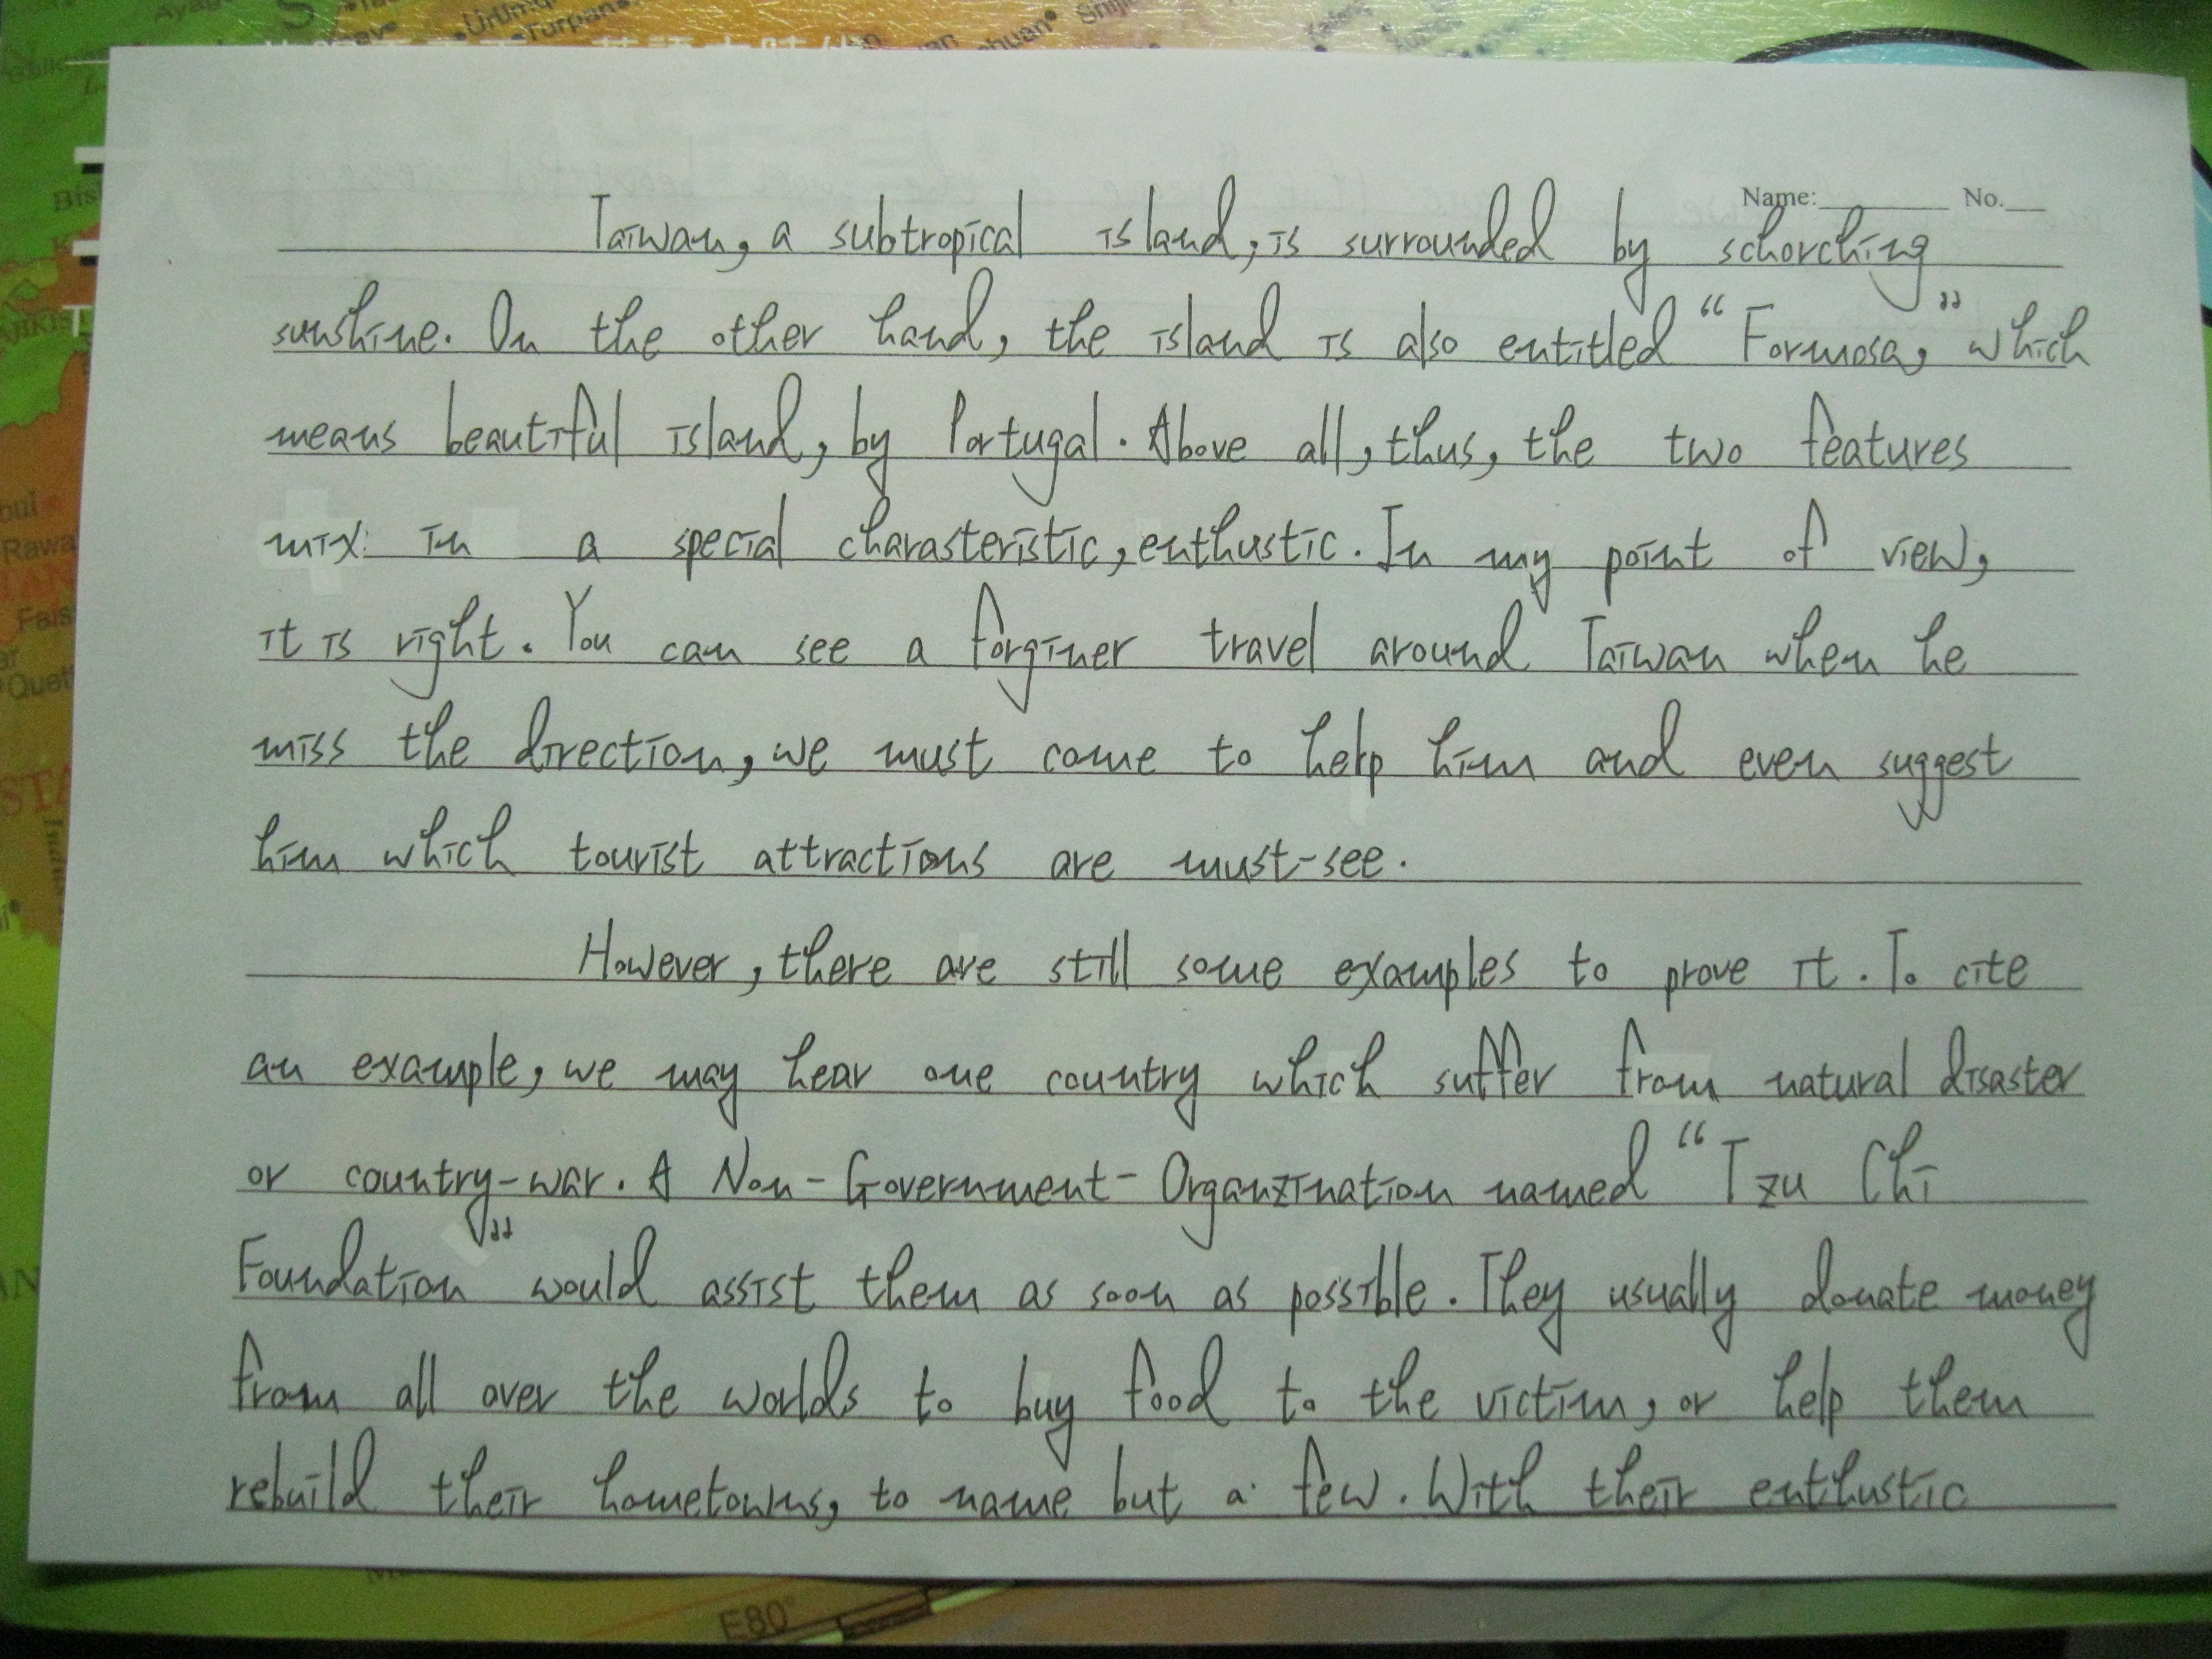 Ürümqi
Turpan
Name:________ No.___
Taiwan, a subtropical island, is surrounded by schorching
sunshine. On the other hand, the island is also entitled “Formosa,” which
means beautiful island, by Portugal. Above all, thus, the two features
mix in a special charasteristic, enthustic. In my point of view,
it is right. You can see a forginer travel around Taiwan when he
miss the direction, we must come to help him and even suggest
him which tourist attractions are must-see.
However, there are still some examples to prove it. To cite
an example, we may hear one country which suffer from natural disaster
or country-war. A Non-Government-Organzination named “Tzu Chi
Foundation” would assist them as soon as possible. They usually donate money
from all over the worlds to buy food to the victim, or help them
rebuild their hometowns, to name but a few. With their enthustic
E80°